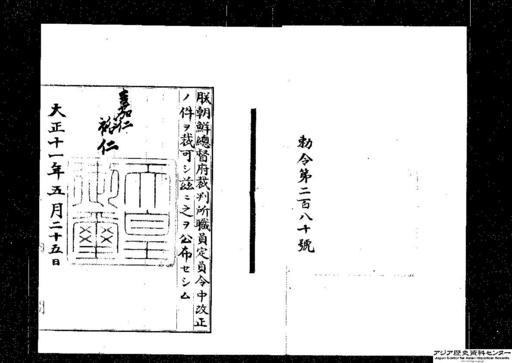 勅令第二百八十號
朕朝鮮總督府裁判所職員定員令中改正
ノ件ヲ裁可シ茲ニ之ヲ公布セシム
嘉仁
裕仁
天皇御璽
大正十一年五月二十五日
アジア歴史資料センター
Japan Center for Asian Historical Records